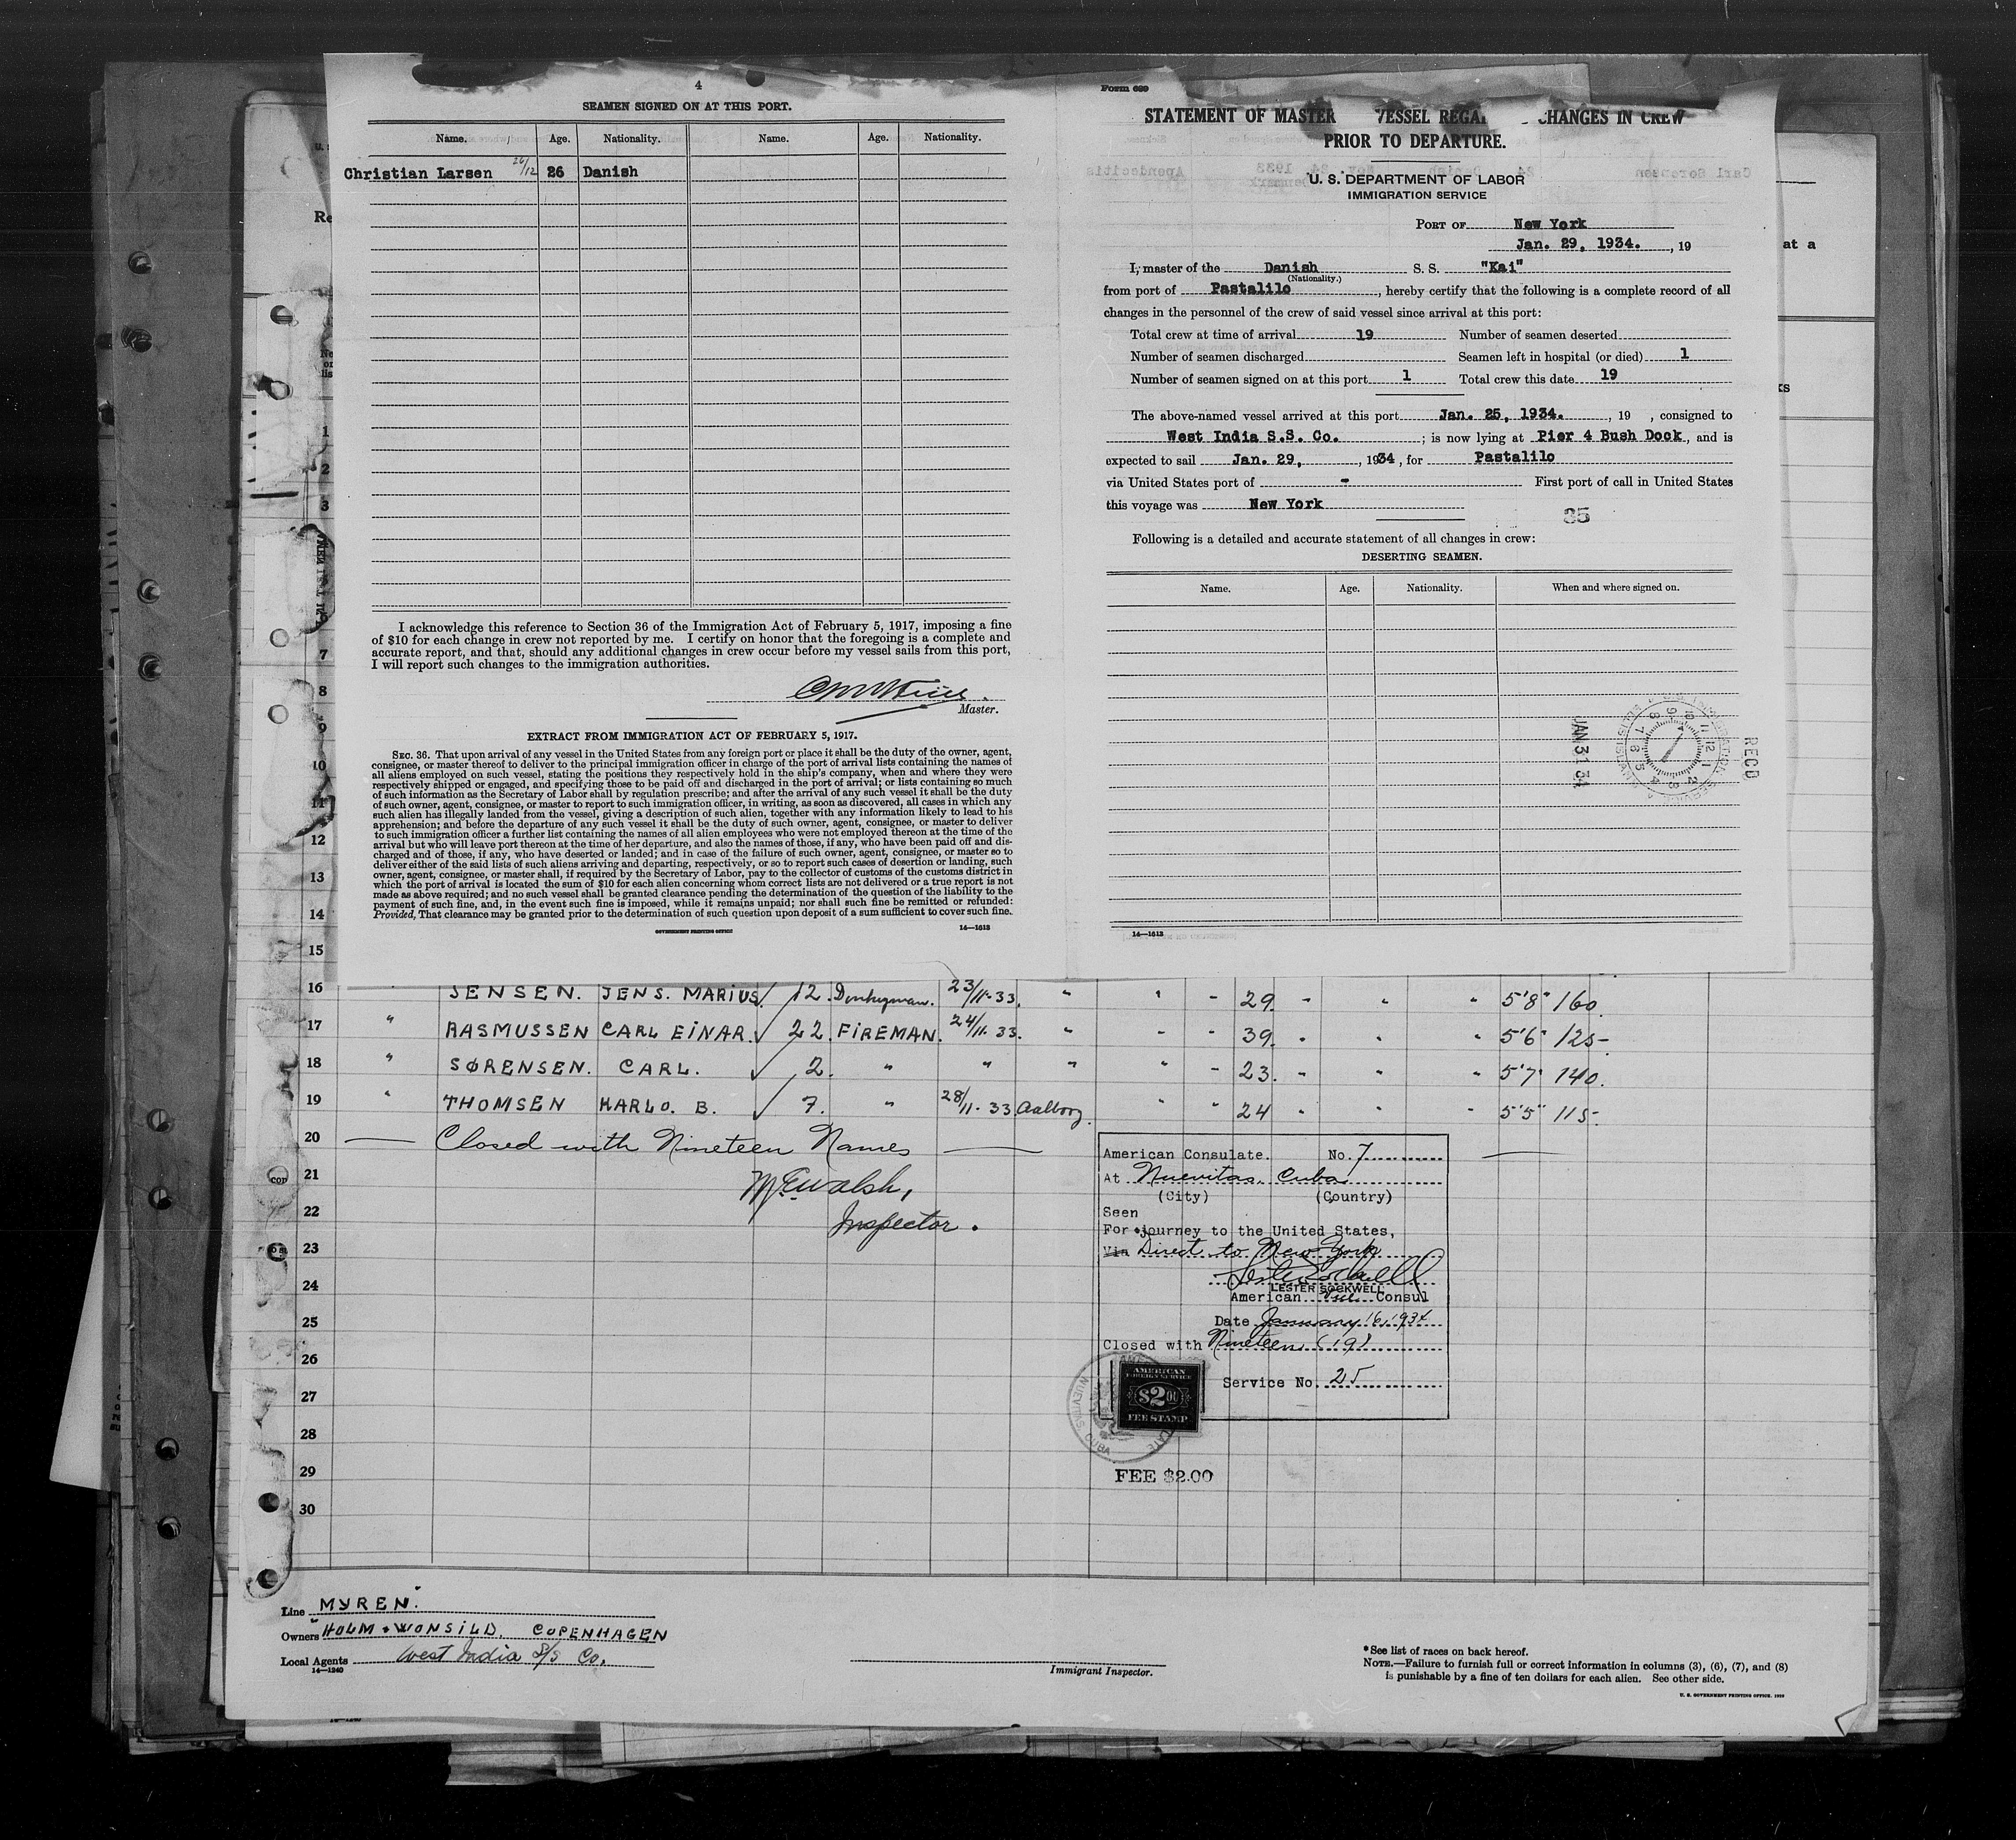 4
SEAMEN SIGNED ON AT THIS PORT.
Name. Age. Nationality. Name. Age. Nationality.
Christian Larsen 26/12 26 Danish
I acknowledge this reference to Section 36 of the Immigration Act of February 5, 1917, imposing a fine
of $10 for each change in crew not reported by me. I certify on honor that the foregoing is a complete and
accurate report, and that, should any additional changes in crew occur before my vessel sails from this port,
I will report such changes to the immigration authorities.
Master.
EXTRACT FROM IMMIGRATION ACT OF FEBRUARY 5, 1917.
SEC. 36. That upon arrival of any vessel in the United States from any foreign port or place it shall be the duty of the owner, agent,
consignee, or master thereof to deliver to the principal immigration officer in charge of the port of arrival lists containing the names of
all aliens employed on such vessel, stating the positions they respectively hold in the ship's company, when and where they were
respectively shipped or engaged, and specifying those to be paid off and discharged in the port of arrival; or lists containing so much
of such information as the Secretary of Labor shall by regulation prescribe; and after the arrival of any such vessel it shall be the duty
of such owner, agent, consignee, or master to report to such immigration officer, in writing, as soon as discovered, all cases in which any
such alien has illegally landed from the vessel, giving a description of such alien, together with any information likely to lead to his
apprehension; and before the departure of any such vessel it shall be the duty of such owner, agent, consignee, or master to deliver
to such immigration officer a further list containing the names of all alien employees who were not employed thereon at the time of the
arrival but who will leave port thereon at the time of her departure, and also the names of those, if any, who have been paid off and dis-
charged and of those, if any, who have deserted or landed; and in case of the failure of such owner, agent, consignee, or master so to
deliver either of the said lists of such aliens arriving and departing, respectively, or so to report such cases of desertion or landing, such
owner, agent, consignee, or master shall, if required by the Secretary of Labor, pay to the collector of customs of the customs district in
which the port of arrival is located the sum of $10 for each alien concerning whom correct lists are not delivered or a true report is not
made as above required; and no such vessel shall be granted clearance pending the determination of the question of the liability to the
payment of such fine, and, in the event such fine is imposed, while it remains unpaid; nor shall such fine be remitted or refunded:
Provided, That clearance may be granted prior to the determination of such question upon deposit of a sum sufficient to cover such fine.
GOVERNMENT PRINTING OFFICE 14—1613
Form 689
STATEMENT OF MASTER VESSEL REGA CHANGES IN CREW
PRIOR TO DEPARTURE.
U. S. DEPARTMENT OF LABOR
IMMIGRATION SERVICE
PORT OF New York
Jan. 29, 1934. , 19
I, master of the Danish S. S. "Kai"
(Nationality.)
from port of Pastalilo , hereby certify that the following is a complete record of all
changes in the personnel of the crew of said vessel since arrival at this port:
Total crew at time of arrival 19 Number of seamen deserted
Number of seamen discharged Seamen left in hospital (or died) 1
Number of seamen signed on at this port 1 Total crew this date 19
The above-named vessel arrived at this port Jan. 25, 1934. , 19 , consigned to
West India S.S. Co. ; is now lying at Pier 4 Bush Dock, and is
expected to sail Jan. 29, , 1934, for Pastalilo
via United States port of - First port of call in United States
this voyage was New York
35
Following is a detailed and accurate statement of all changes in crew:
DESERTING SEAMEN.
Name. Age. Nationality. When and where signed on.
RECD
JAN 31 34
14—1613
at a
1
2
3
7
8
9
10
11
12
13
14
15
16 JENSEN. JENS. MARIUS 12. Donkeyman. 23/11-33. " " " 29. " " " 5'8" 160.
17 " RASMUSSEN CARL EINAR. 22. FIREMAN. 24/11.33. " " " 39. " " " 5'6" 125-
18 " SØRENSEN. CARL. 2. " " " " " 23. " " " 5'7" 140.
19 " THOMSEN KARLO. B. 7. " 28/11-33 Aalborg. " " 24 " " " 5'5" 115-
20 Closed with Nineteen Names
21 McEwalsh,
22 Inspector.
23
24
25
26
27
28
29
30
American Consulate. No. 7
At Nuevitas, Cuba
(City) (Country)
Seen
For journey to the United States,
Via Direct to New York
LESTER SOCKWELL
American Vice Consul
Date January 16, 1934
Closed with Nineteen (19)
Service No. 25
AMERICAN
FOREIGN SERVICE
$2.00
FEE STAMP
NUEVITAS CUBA
FEE $2.00
Line MYREN.
Owners HOLM & WONSILD, COPENHAGEN
Local Agents West India S/S Co.
14—1240
Immigrant Inspector.
*See list of races on back hereof.
NOTE.—Failure to furnish full or correct information in columns (3), (6), (7), and (8)
is punishable by a fine of ten dollars for each alien. See other side.
U. S. GOVERNMENT PRINTING OFFICE